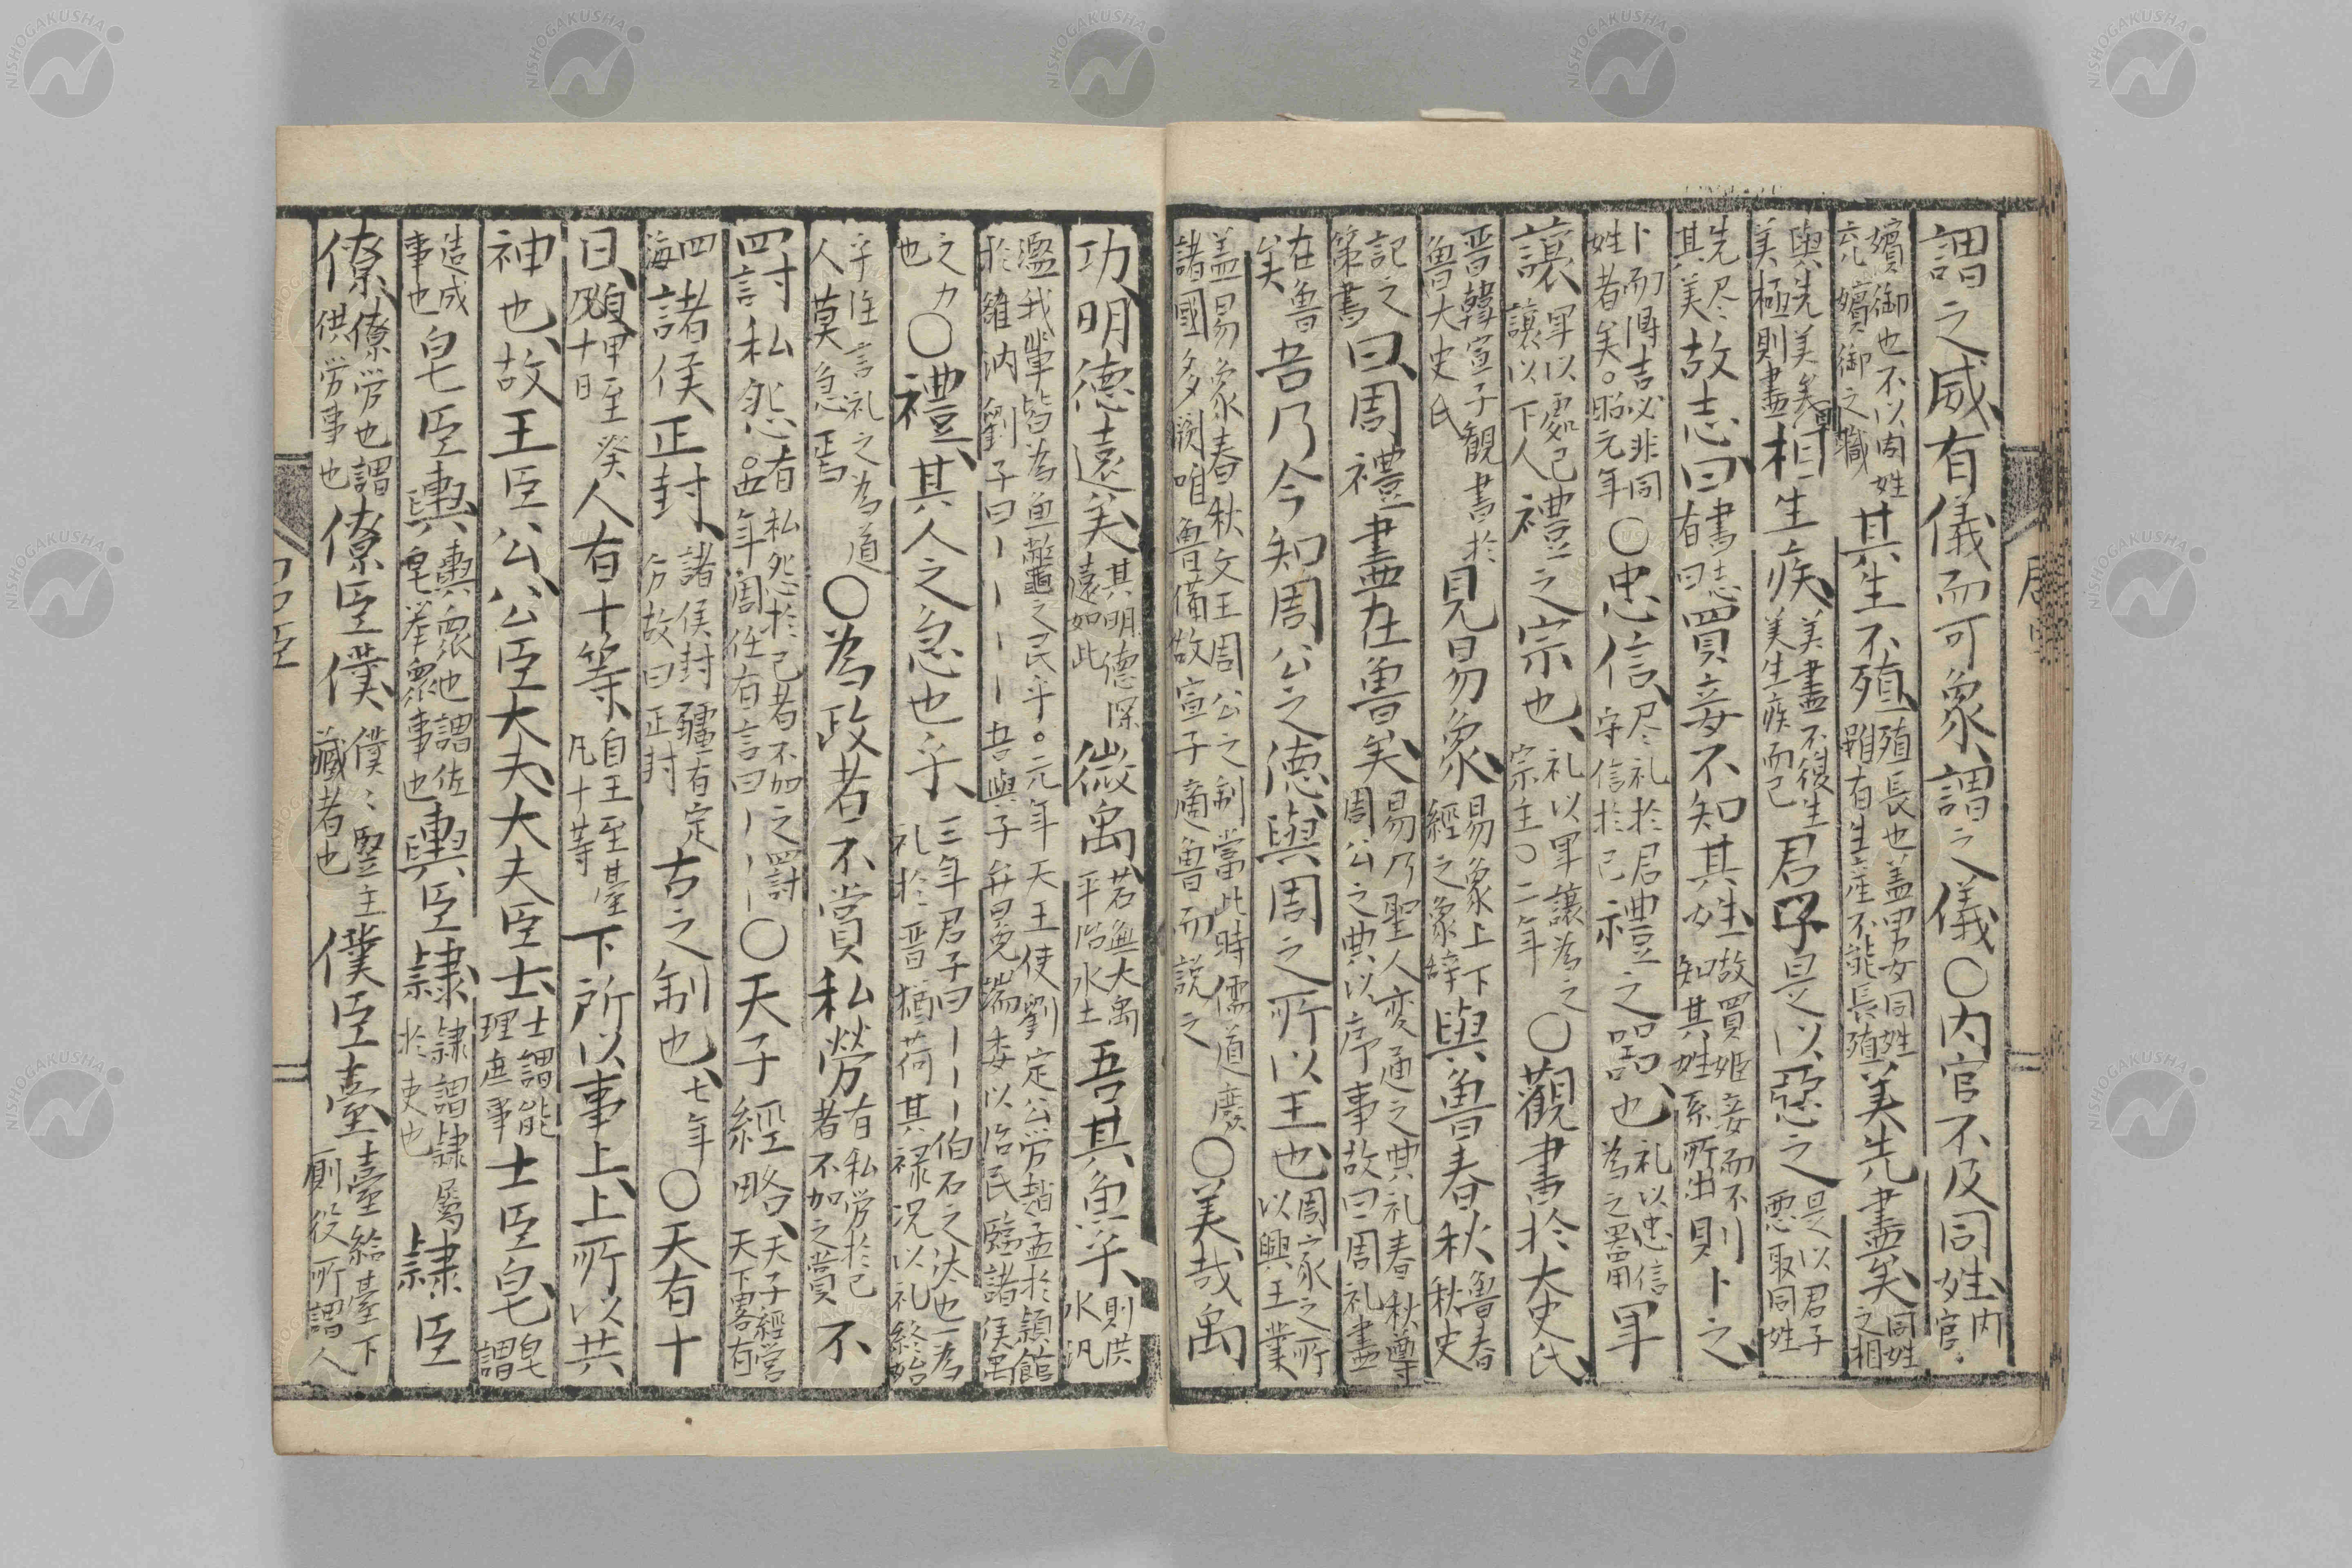 謂之威有儀而可象謂之儀○内官不及同姓内官
嬪御也不以同姓充嬪御之職其生不殖殖長也盖男女同姓相有生産不能長殖美先盡矣同姓之相
與先美美極則盡相生疾美盡不復生美生疾而已君子是以惡之是以君子悪取同姓
先尽其美故志曰書志有曰買妾不知其姓故買姬妾而不知其姓系所出則卜之
卜而得吉必非同姓者矣。昭元年○忠信尽礼於君守信於己禮之器也礼以忠信為之噐用卑
讓卑以處己讓以下人禮之宗也礼以卑讓為之宗主○二年○觀書於大史氏
晋韓宣子觀書於魯大史氏見易象易象上下經之象辞與魯春秋魯春秋史
記之策書曰周禮盡在魯矣易乃聖人変通之典礼春秋尊周公之典以序事故曰周礼盡
在魯矣吾乃今知周公之德與周之所以王也周家之所以興王業
盖易象春秋文王周公之制當此時儒道廢諸國多闕唯魯備故宣子適魯而説之○美哉禹
功明德遠矣其明德深遠如此微禹若無大禹平治水土吾其魚乎則洪水汎
濫我輩皆為魚鼈之民乎。元年天王使劉定公労趙孟於潁館於雒汭劉子曰丨丨丨丨吾與子弁冕端委以治民臨諸侯禹
之力也○禮其人之急也乎三年君子曰丨丨丨伯石之汰也一為礼於晋猶荷其禄况以礼終始
乎注言礼之為道人莫急焉○為政者不賞私勞有私労於己者不加之賞不
罰私怨有私怨於己者不加之罰。五年周任有言曰丨丨丨○天子經略天子經営天下畧有
四海諸侯正封諸侯封疆有定分故曰正封古之制也七年○天有十
日自甲至癸凡十日人有十等自王至臺凡十等下所以事上上所以共
神也故王臣公公臣大夫大夫臣士士謂能理庶事士臣皂皂謂
造成事也皂臣輿輿衆也謂佐皂举衆事也輿臣隷隷謂隷屬於吏也隷臣
僚僚労也謂供労事也僚臣僕僕〻竪主藏者也僕臣臺臺給臺下厠役所謂人